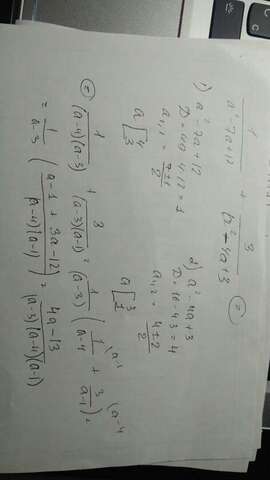 1/(a²-7a+12) + 3/(a²-4a+3) =
1) a²-7a+12
D=49-4·12=1
a₁,₂ = (7±1)/2
a [4 3
2) a²-4a+3
D=16-4·3=4
a₁,₂ = (4±2)/2
a [3 1
= 1/((a-4)(a-3)) + 3/((a-3)(a-1)) = 1/(a-3) (1/(a-4) + 3/(a-1)) =
= 1/(a-3) ((a-1+3a-12)/((a-4)(a-1))) = (4a-13)/((a-3)(a-4)(a-1))